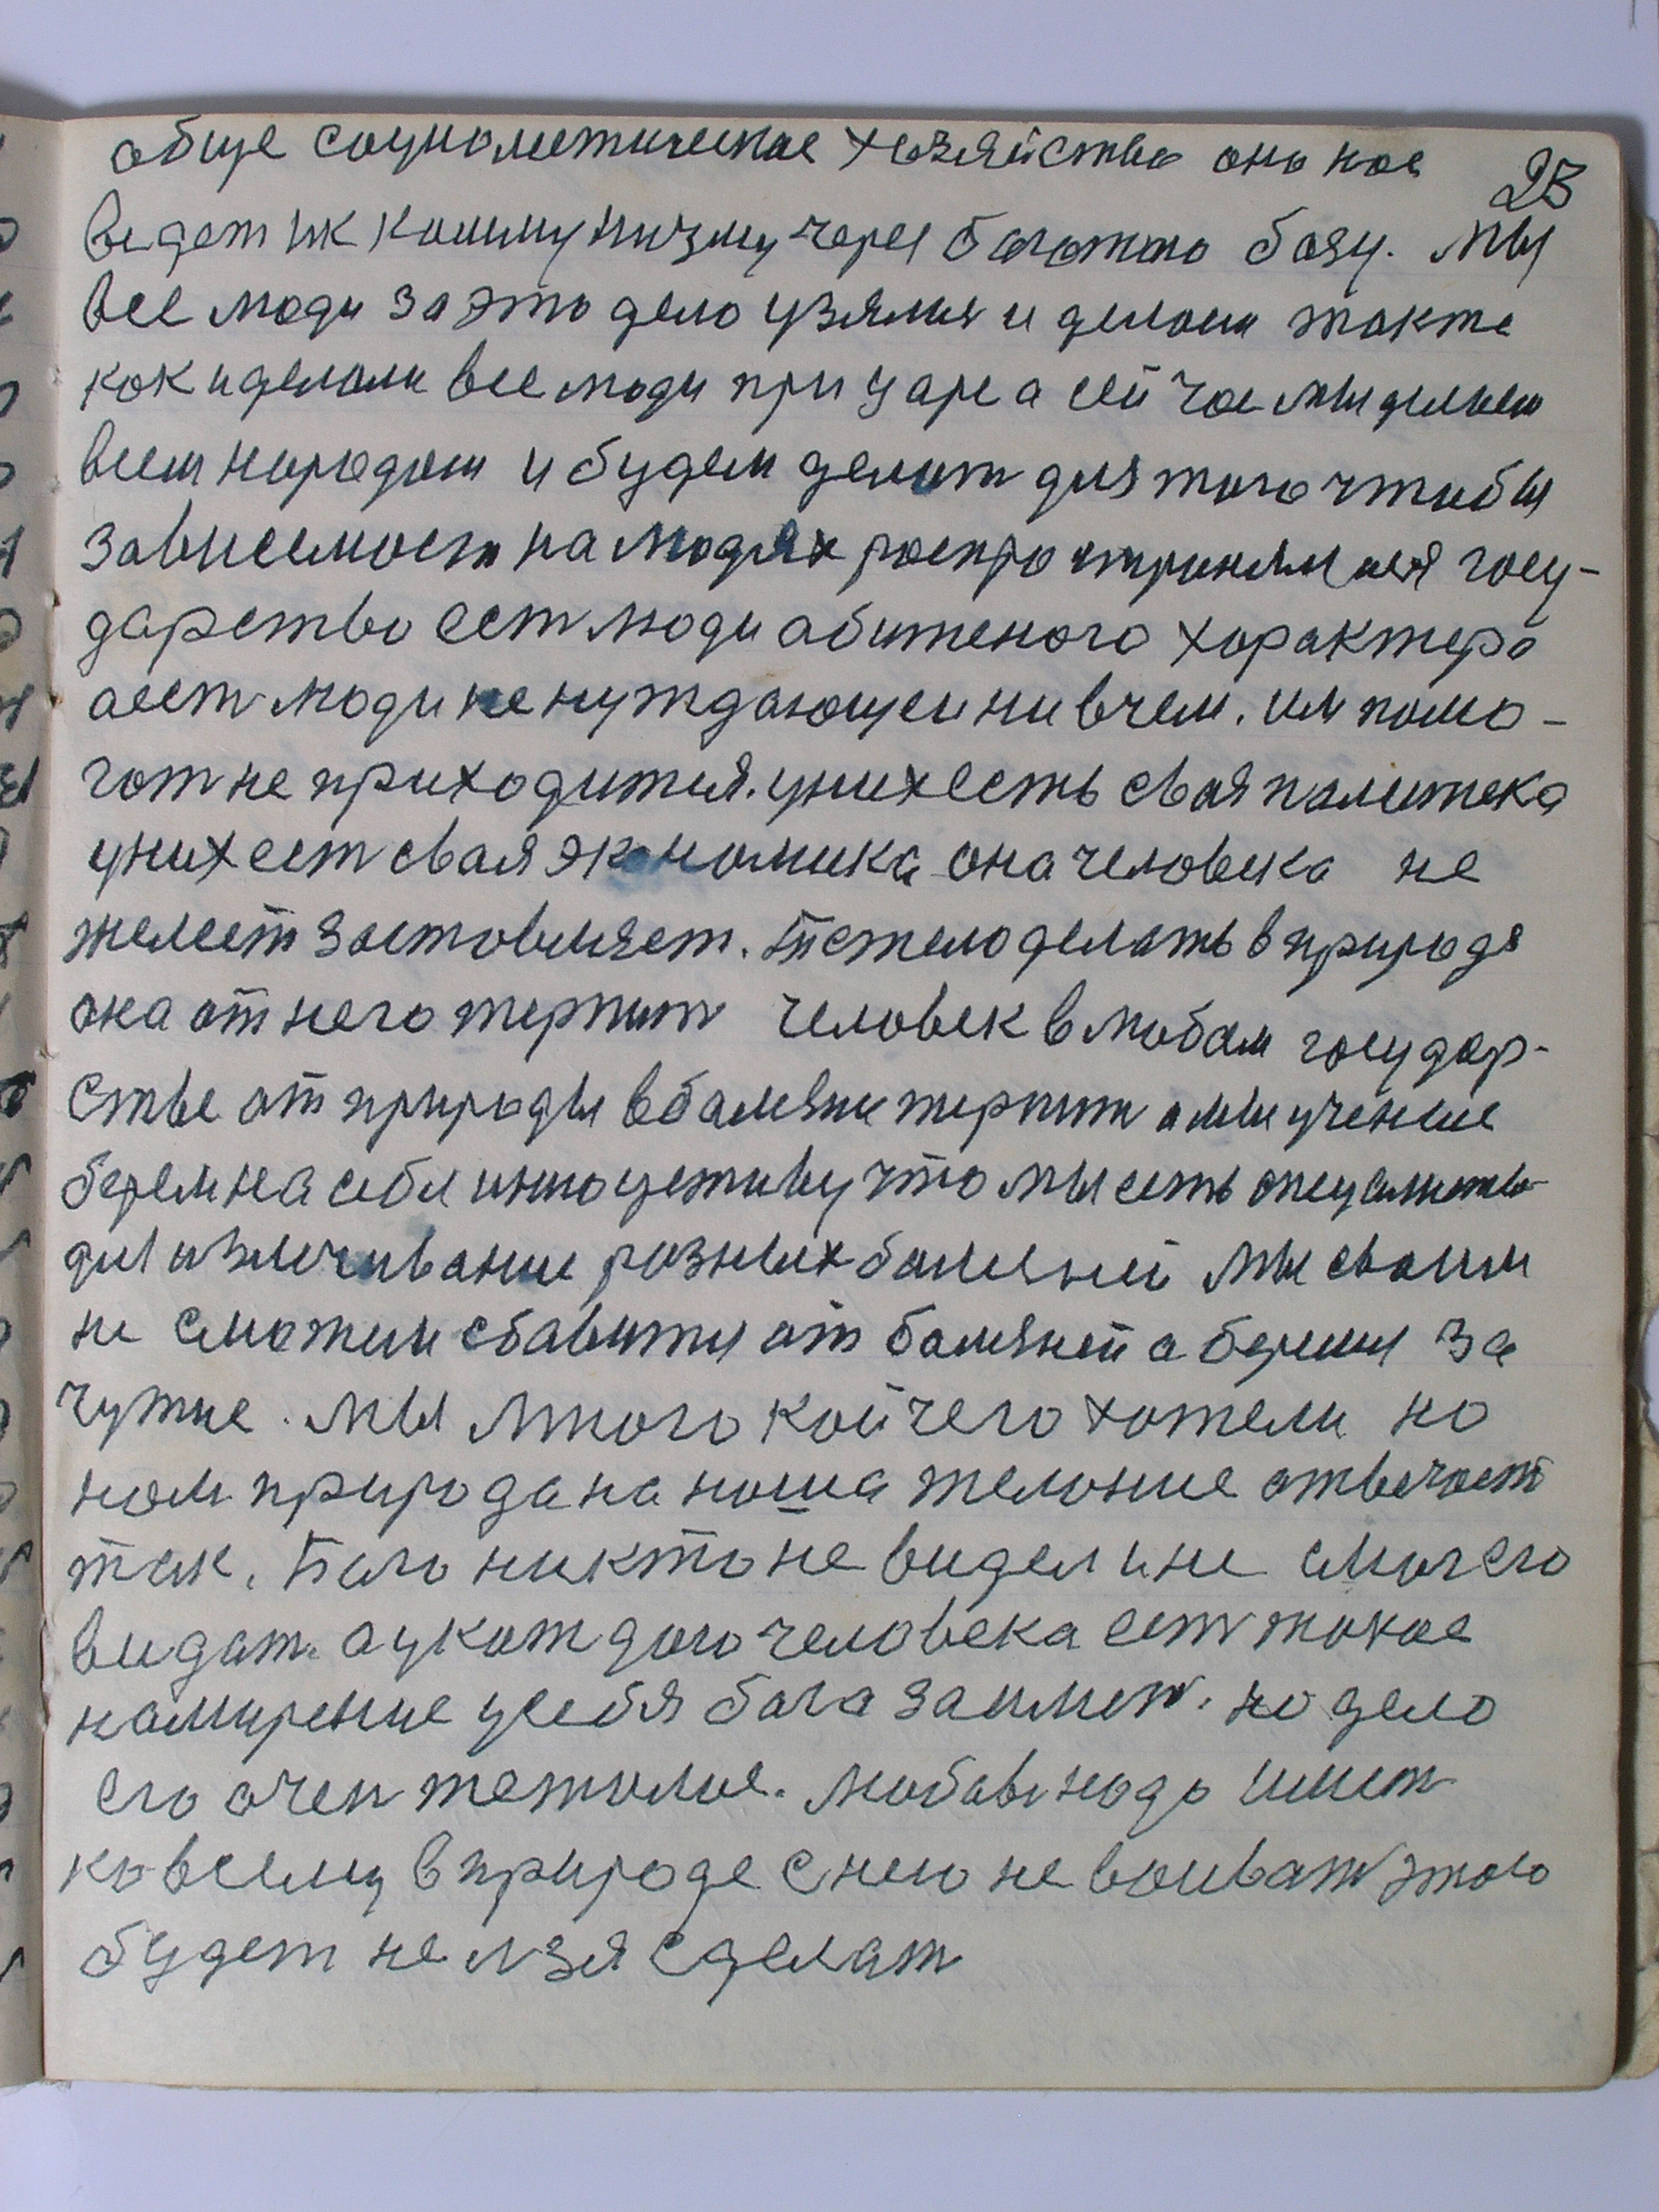 обще социолистическае хозяйства она нас 23
ведет ик коммунизму через богатою базу. мы
все люди за это дело узялися и делаем также
как и делали все люди при царе а сей час мы делаем
всем народом и будем делат для того чтобы
зависемост на людях распростронялася госу-
дарство ест люди обитеного характера
а ест люди не нуждающеи ни в чем. им помо-
гат не приходится. у них есть свая политека
у них ест свая экономика она человека не
желеет заставляет. тежело делать в природе
она от него терпит человек в любом государ-
стве от природы в болезни терпит а мы ученые
берем на себя иницетиву что мы есть специлисты
для излечивание разных болезней мы своим
не сможем сбавится от болезней а беремся за
чужие. мы много кой чего хотели но
нам природа на наша желание отвечает
так. Бога никто не видел и не смог его
видат. а у каждого человека ест такое
намирение у себя бога заимет. но дело
его очен тежолое. любовь надо имет
ко всему в природе с нею не воиват этого
будет не лзя сделат